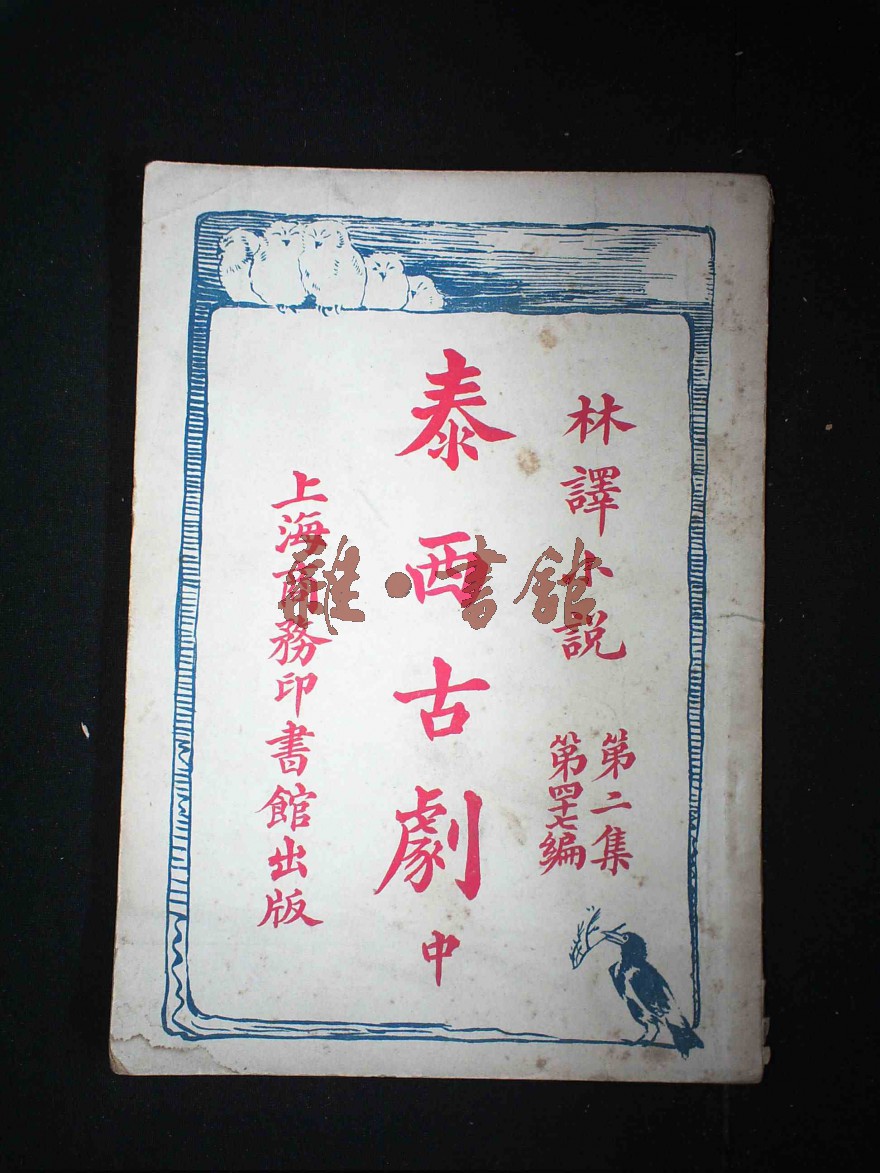 林譯小説
第二集
第四十七編
泰西古劇 中
上海商務印書館出版
雜·書館